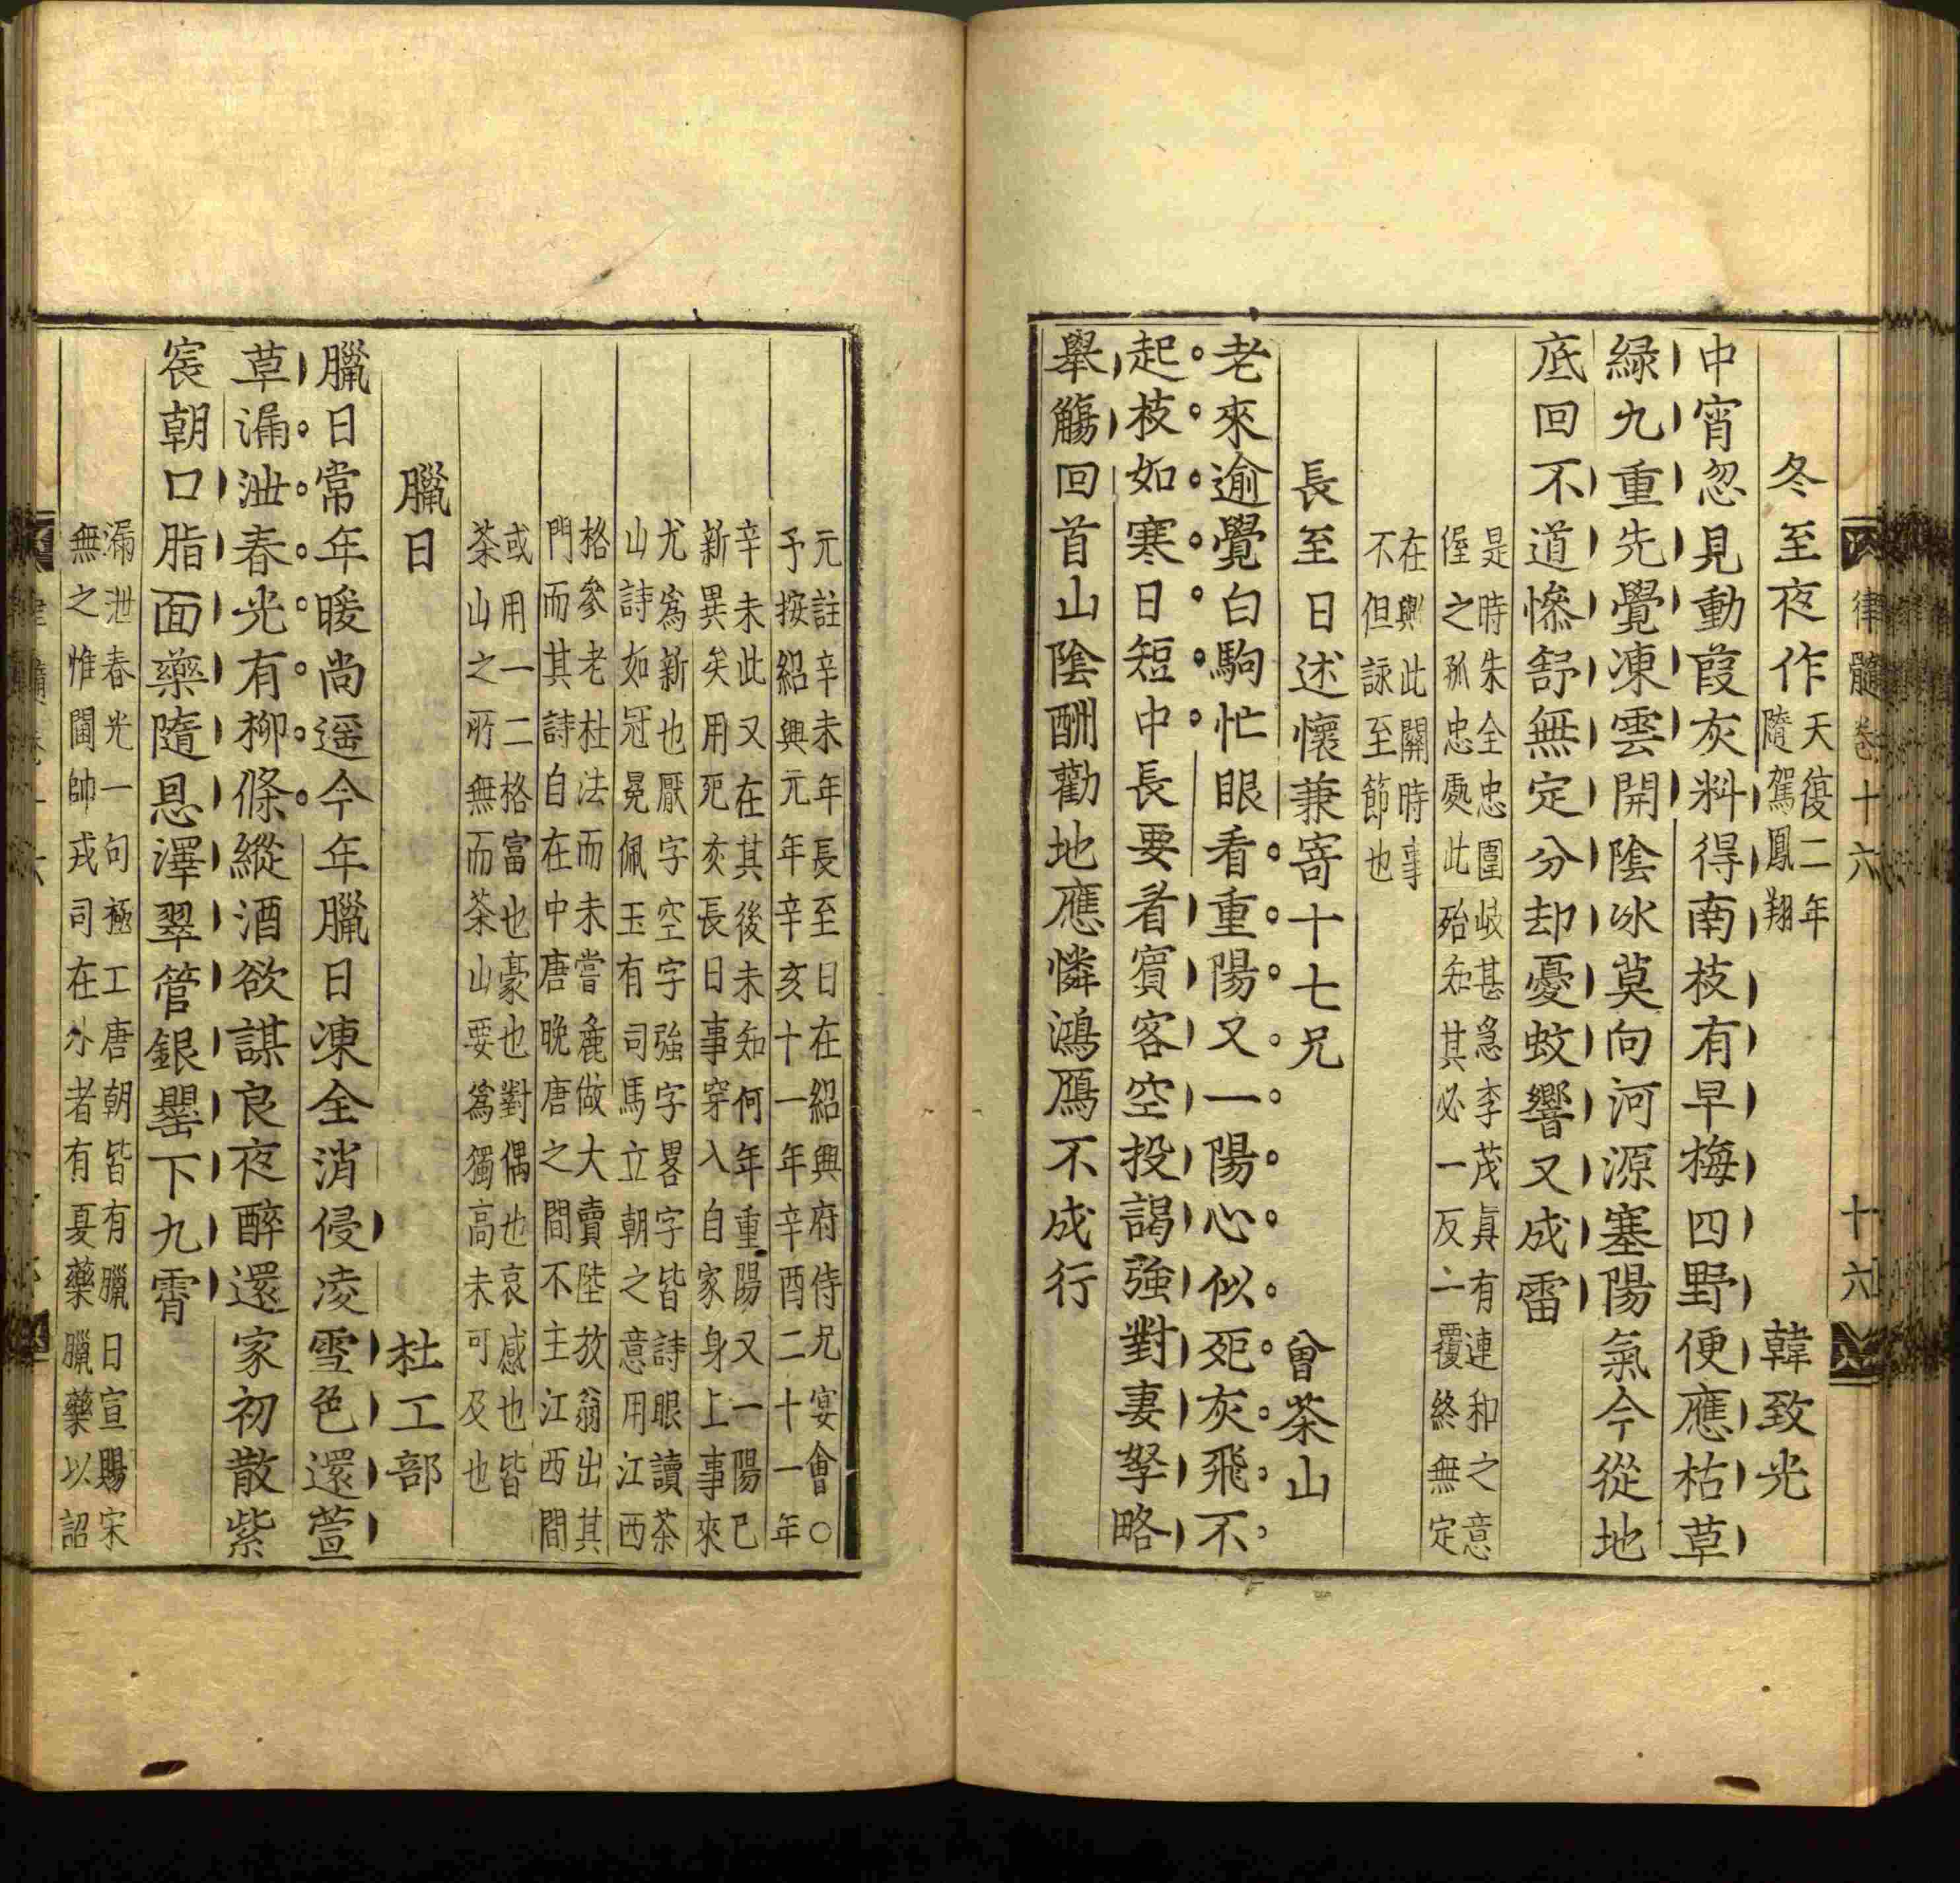 律髓卷十六 十六
冬至夜作 天復二年隨駕鳳翔 韓致光
中宵忽見動葭灰料得南枝有早梅四野便應枯草
緑九重先覺凍雲開陰冰莫向河源塞陽氣今從地
底回不道慘舒無定分却憂蚊響又成雷
是時朱全忠圍岐甚急李茂真有連和之意
偓之孤忠處此殆知其必一反一覆終無定
在與此關時事
不但詠至節也
長至日述懷兼寄十七兄 曾茶山
老來逾覺白駒忙眼看重陽又一陽心似死灰飛不
起枝如寒日短中長要看賓客空投謁強對妻孥略
舉觴回首山陰酬勸地應憐鴻鴈不成行
元註辛未年長至日在紹興府侍兄宴會○
予按紹興元年辛亥十一年辛酉二十一年
辛未此又在其後未知何年重陽又一陽已
新異矣用死灰長日事穿入自家身上事來
尤爲新也厭字空字強字畧字皆詩眼讀茶
山詩如冠冕佩玉有司馬立朝之意用江西
格參老杜法而未嘗麁做大賣陸放翁出其
門而其詩自在中唐晚唐之間不主江西間
或用一二格富也豪也對偶也哀感也皆
茶山之所無而茶山要爲獨高未可及也
臘日 杜工部
臘日常年暖尚遥今年臘日凍全消侵凌雪色還萱
草漏泄春光有柳條縱酒欲謀良夜醉還家初散紫
宸朝口脂面藥隨恩澤翠管銀罌下九霄
漏泄春光一句極工唐朝皆有臘日宣賜宋
無之惟閫帥戎司在外者有夏藥臘藥以詔